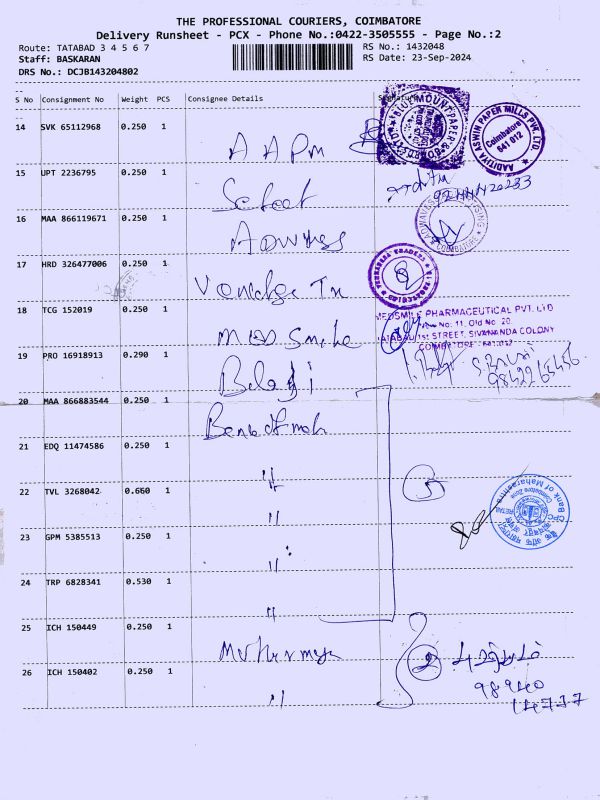 THE PROFESSIONAL COURIERS, COIMBATORE
Delivery Runsheet - PCX - Phone No.:0422-3505555 - Page No.:2
Route: TATABAD 3 4 5 6 7
RS No.: 1432048
Staff: BASKARAN
RS Date: 23-Sep-2024
DRS No.: DCJB143204802
S No Consignment No Weight PCS Consignee Details Signature
14 SVK 65112968 0.250 1 AAPM
BLUE MOUNT PAPER &
AADITYA ASWIN PAPER MILLS PVT. LTD
Coimbatore
641 012
15 UPT 2236795 0.250 1 Select
16 MAA 866119671 0.250 1
COIMBATORE
17 HRD 326477006 0.250 1
18 TCG 152019 0.250 1 Smile
MEDSMILE PHARMACEUTICAL PVT. LTD
No: 11, Old No. 20,
1st STREET, SIVANANDA COLONY
COIMBATORE - 641 012
19 PRO 16918913 0.290 1 Balaji
20 MAA 866883544 0.250 1
21 EDQ 11474586 0.250 1 "
22 TVL 3268042 0.660 1 "
Bank of Maharashtra
Coimbatore Zone
23 GPM 5385513 0.250 1 "
24 TRP 6828341 0.530 1 "
25 ICH 150449 0.250 1
2
98940
14737
26 ICH 150402 0.250 1 "